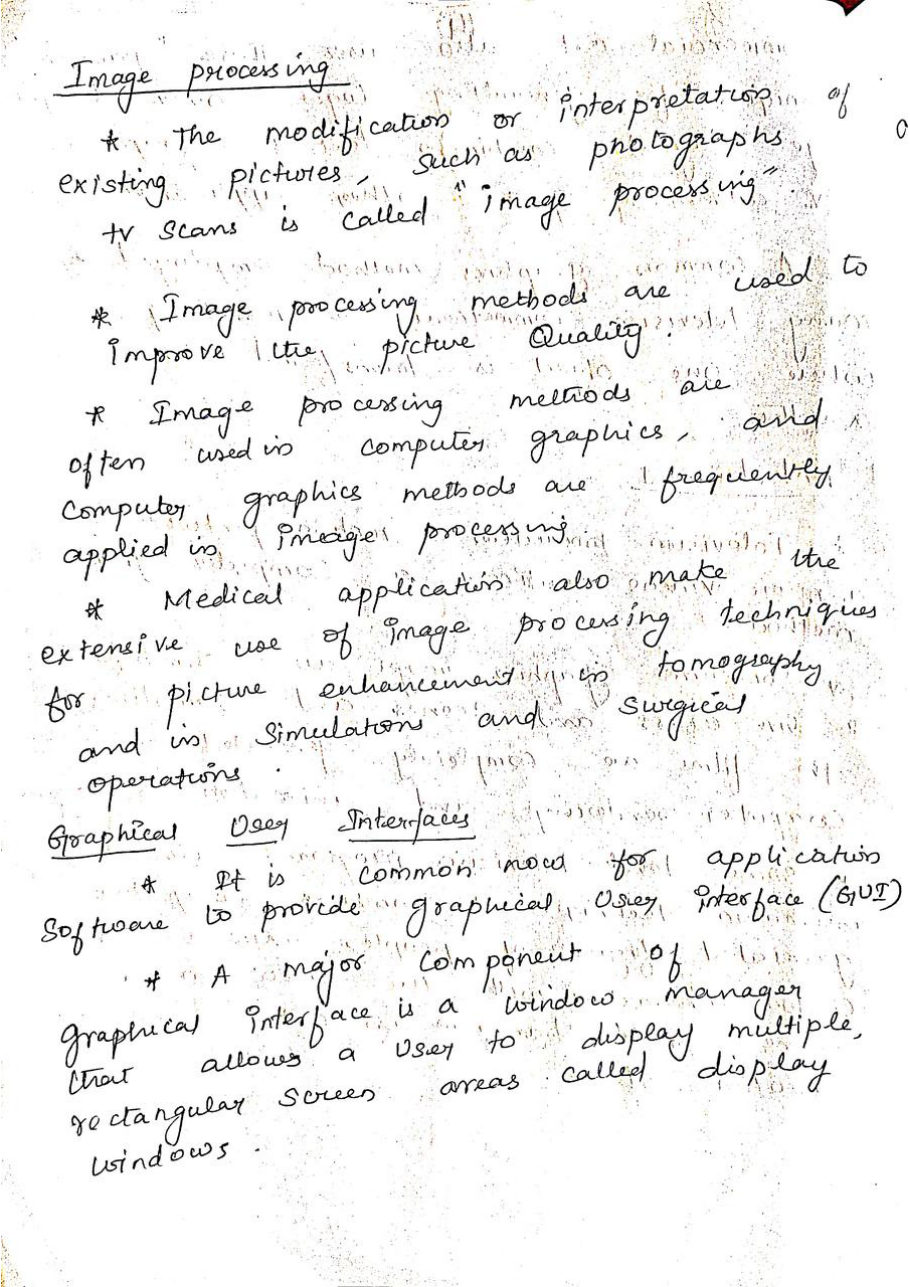 Image processing
* The modification or interpretation of
existing pictures, such as photographs
tv scans is called "image processing".
* Image processing methods are used to
improve the picture Quality.
* Image processing methods are
often used in computer graphics, and
computer graphics methods are frequently
applied in image processing.
* Medical application also make the
extensive use of image processing techniques
for picture enhancement in tomography
and in simulations and surgical
operations.
Graphical User Interfaces
* It is common now for application
software to provide graphical user interface (GUI)
* A major component of
graphical interface is a window manager
that allows a user to display multiple,
rectangular screen areas called display
windows.